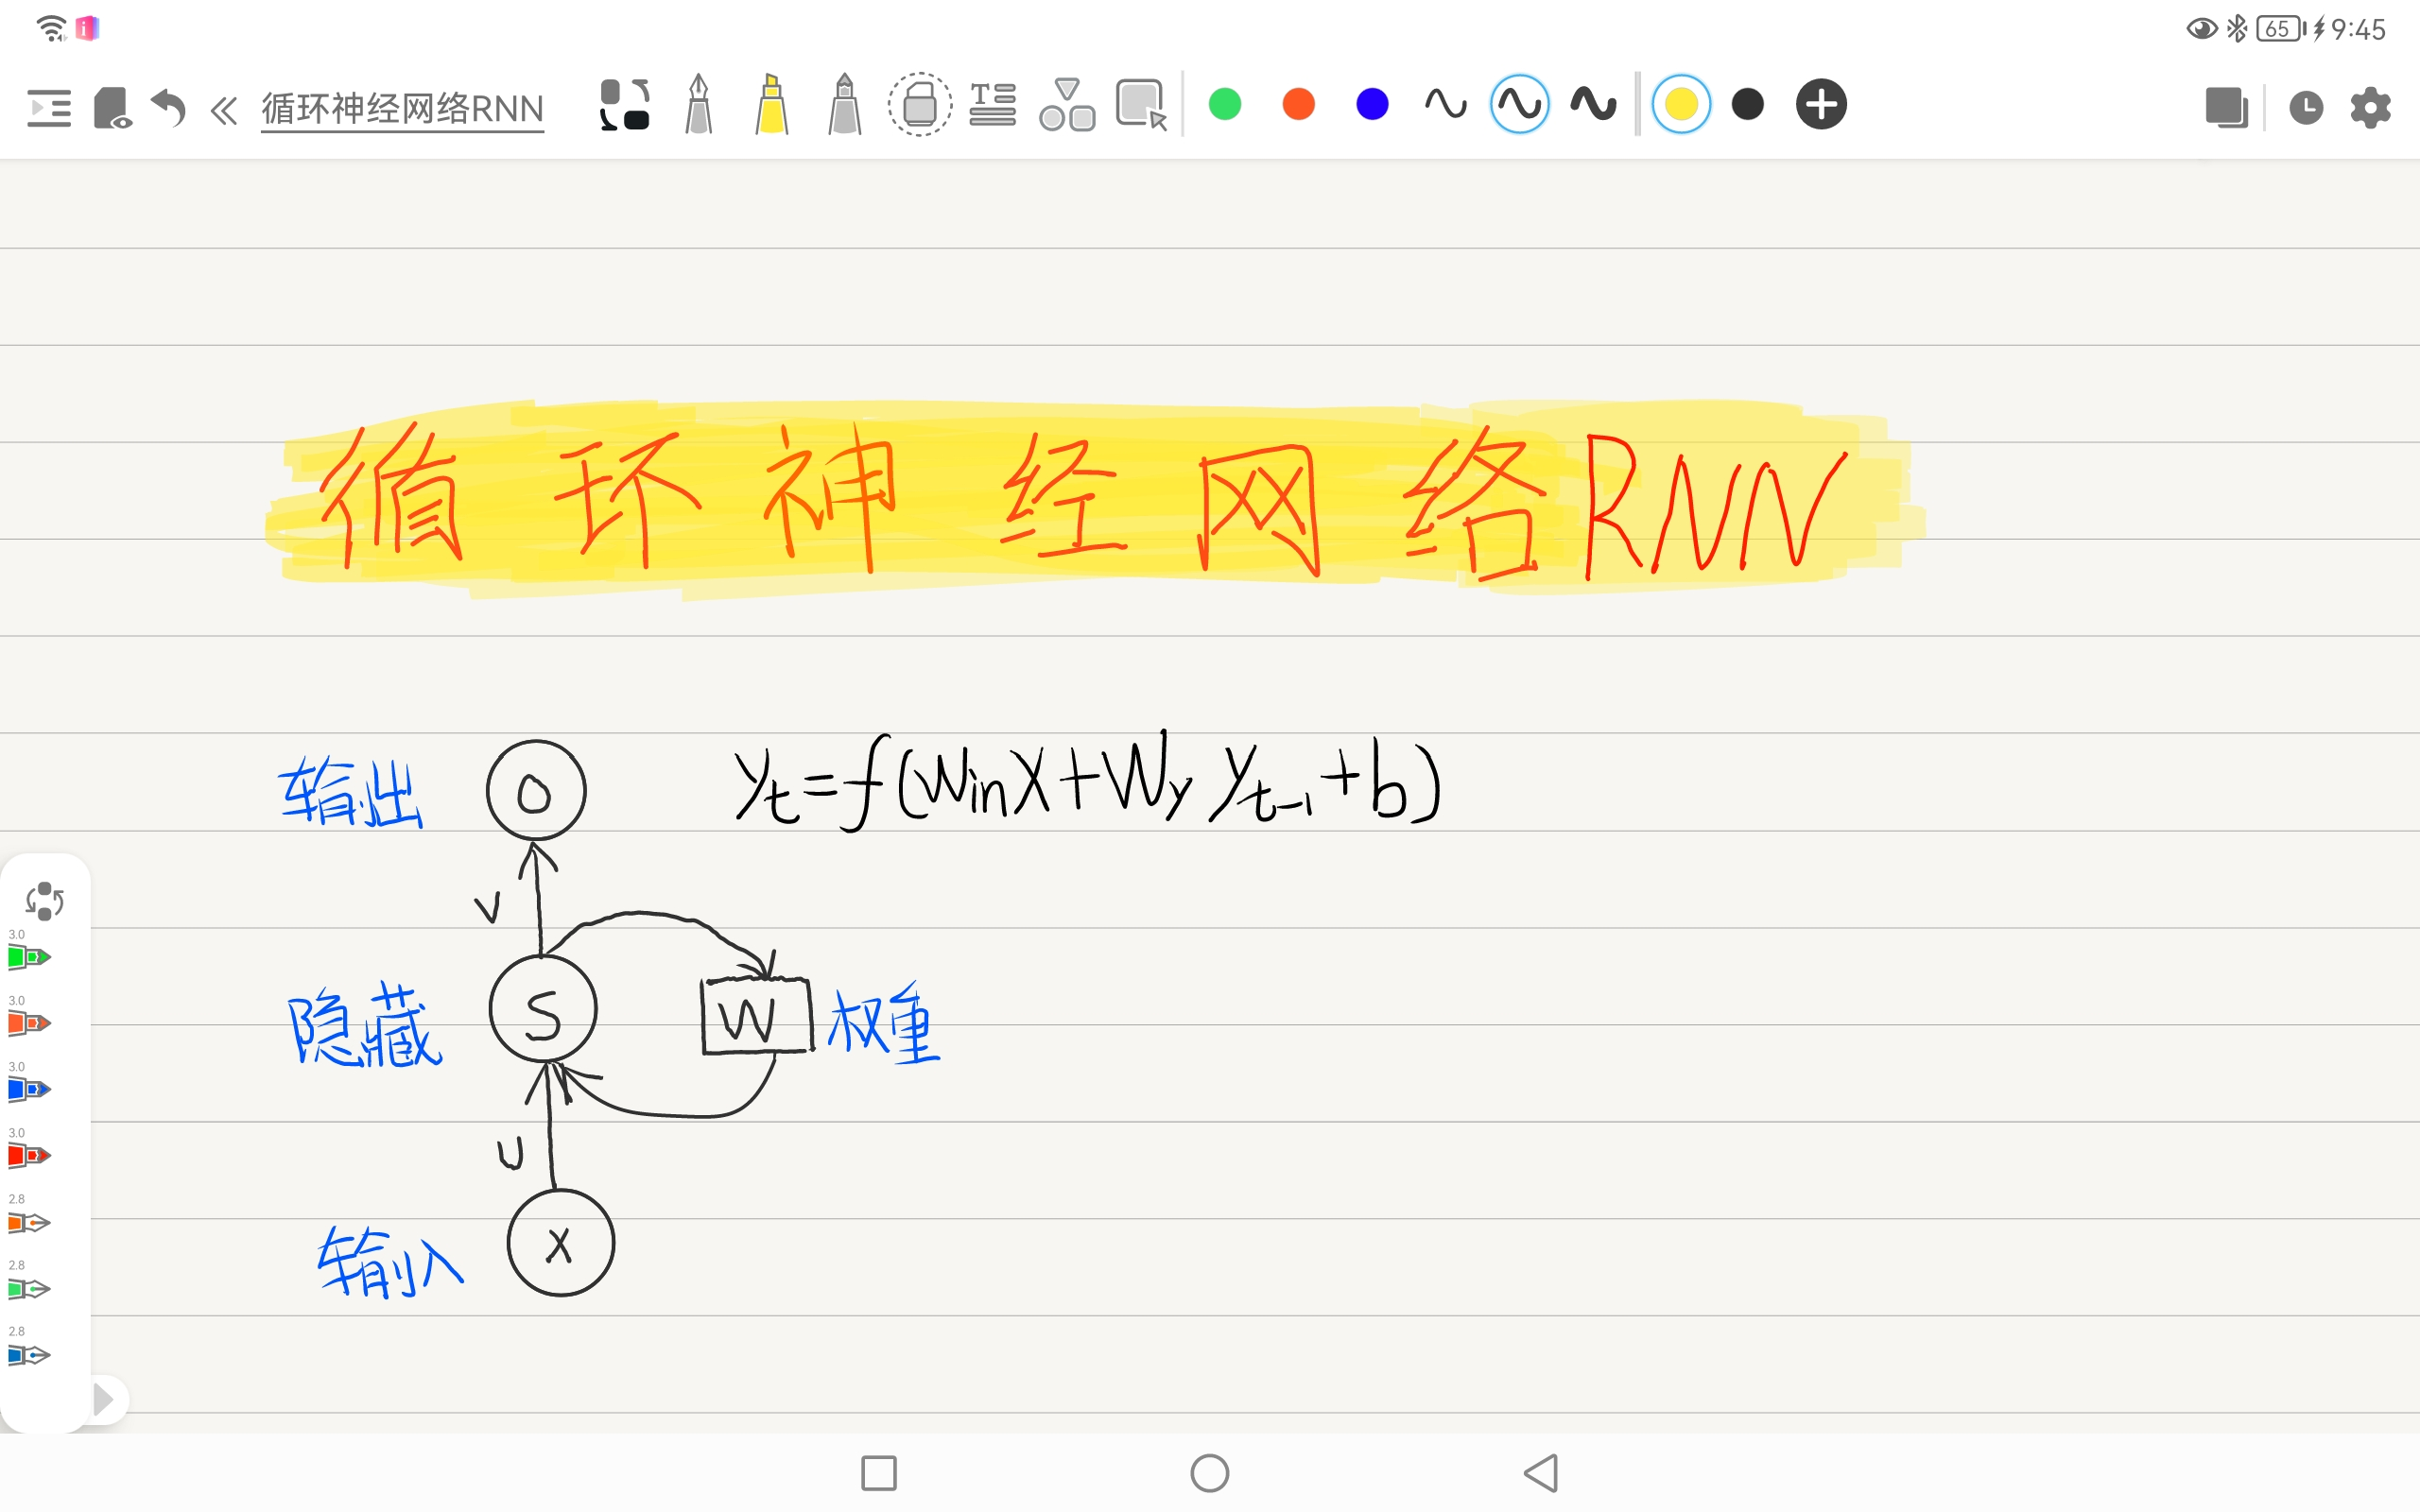 65 9:45
循环神经网络RNN
循环神经网络RNN
输出 O yt=f(WinX+Wy yt-1+b)
V
隐藏 S W 权重
U
输入 X
3.0
3.0
3.0
3.0
2.8
2.8
2.8